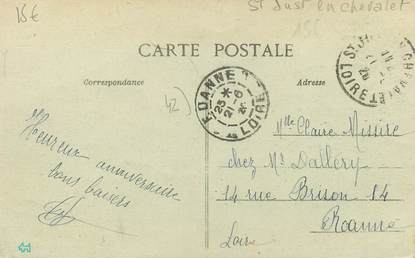 15€
St Just en chevalet
15€
CARTE POSTALE
Correspondance
Adresse
ROANNE
23 *
21-6
LOIRE
LOIRE
42)
Heureux anniversaire
bons baisers
Mlle Claire Missire
chez Mr Dallery
14 rue Brison 14
Roanne
Loire